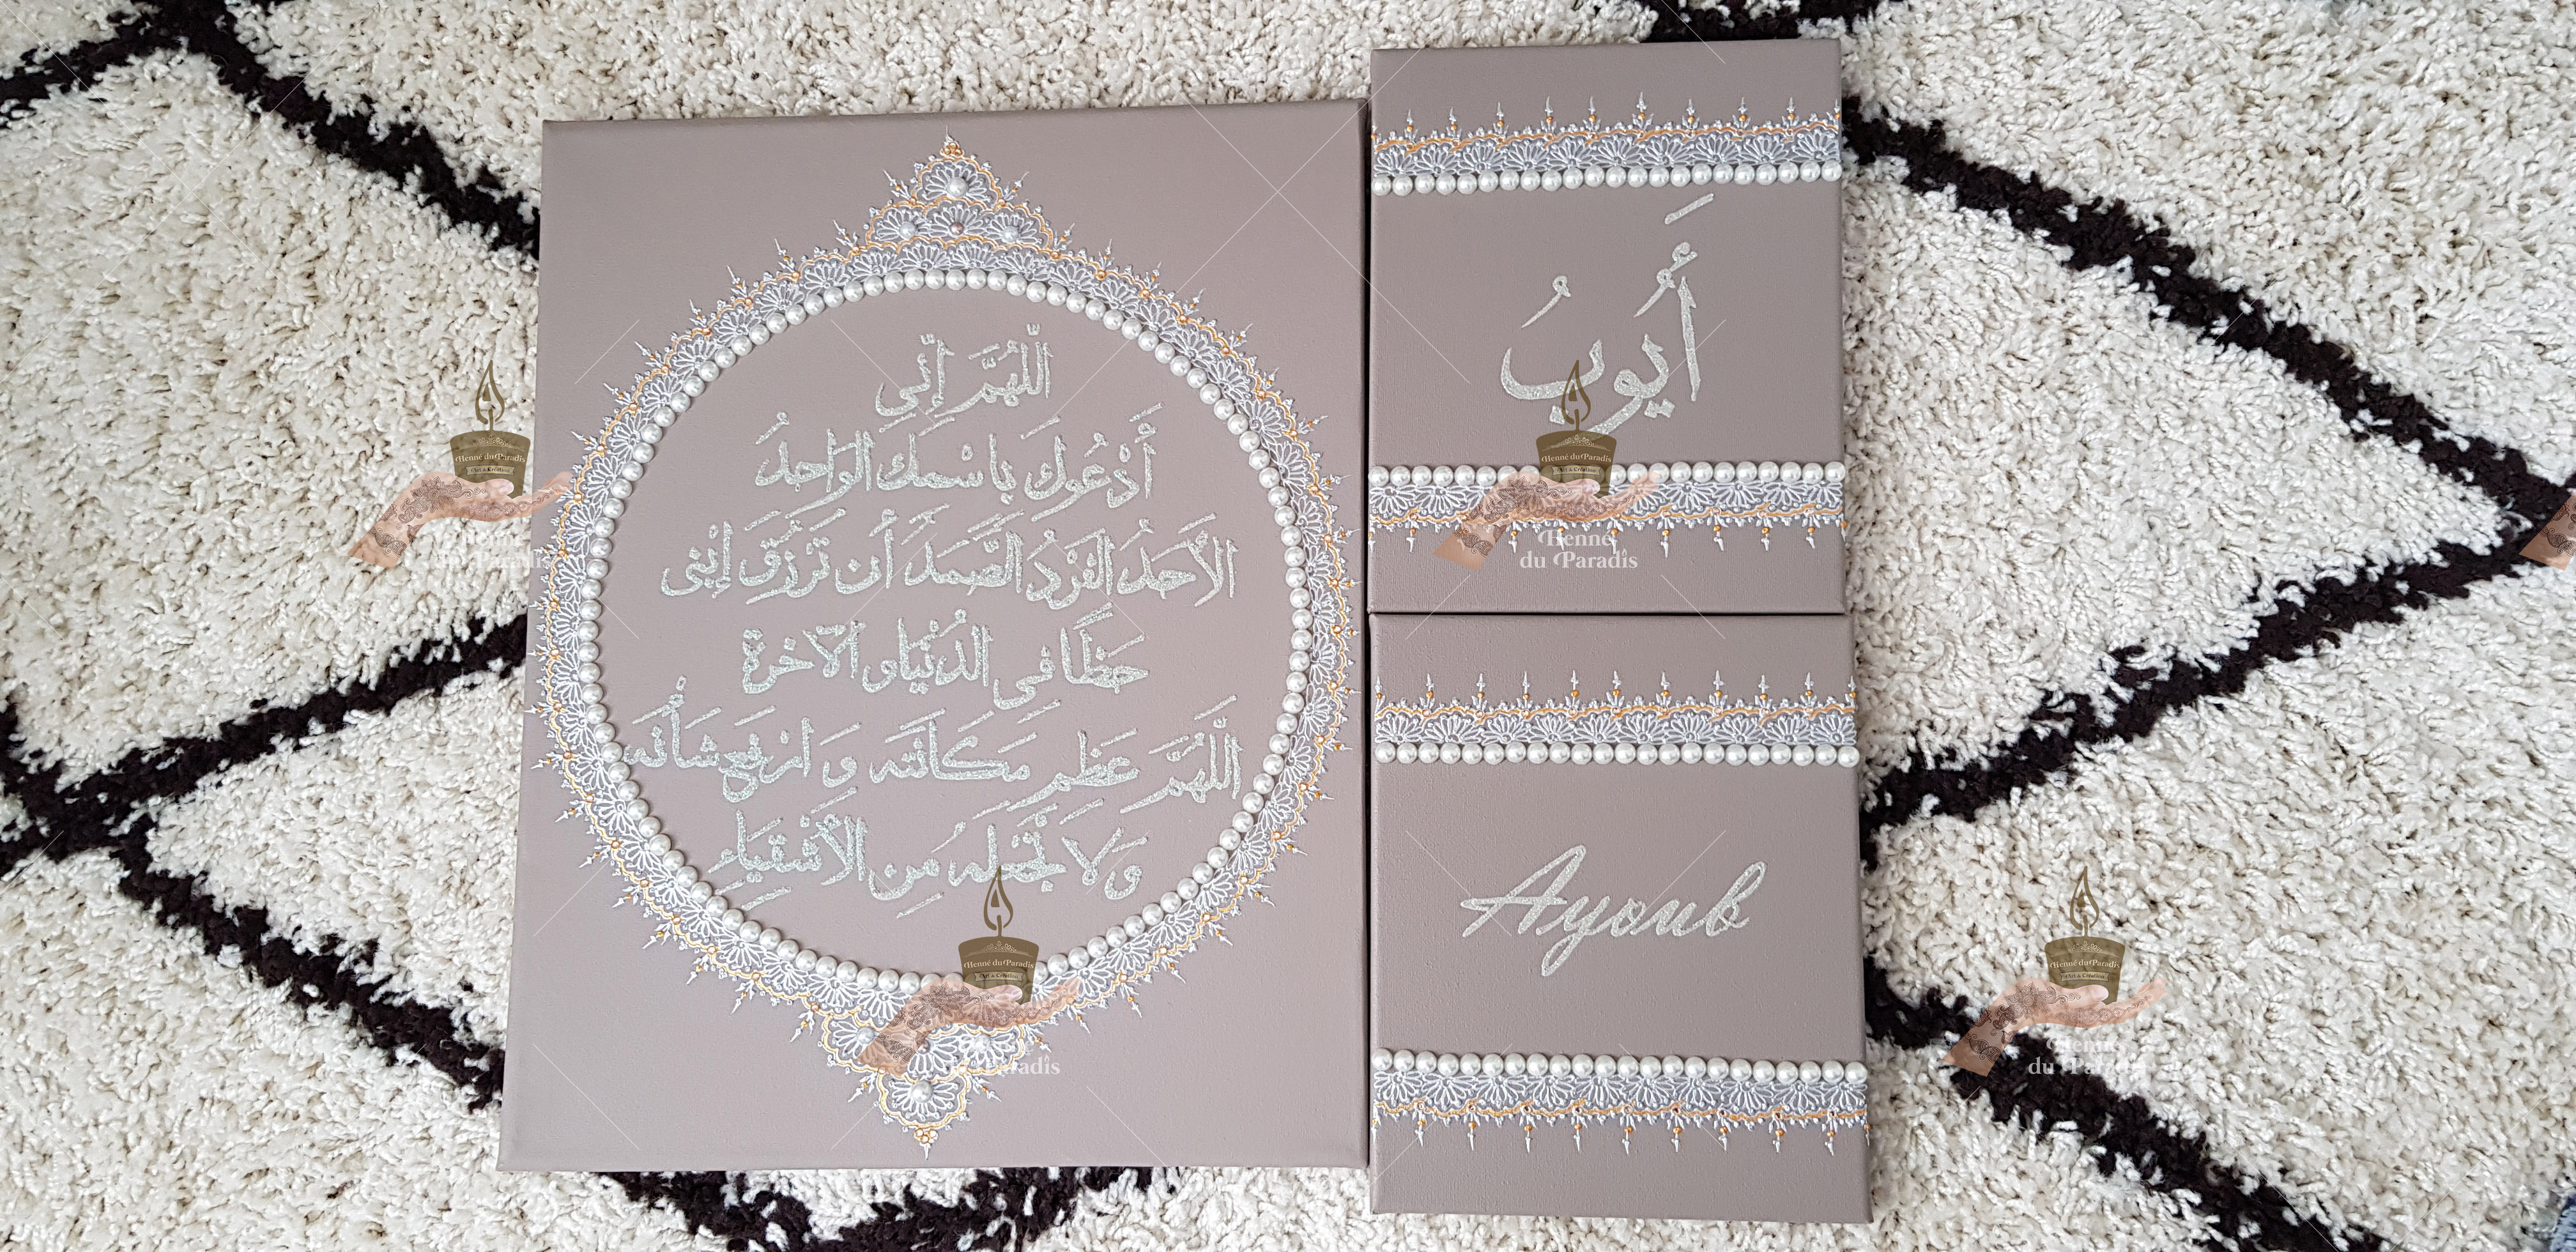 اللّهُمَّ إنّي
أَدْعُوكَ بِاسْمِكَ الوَاحِدُ
الأَحَدُ الفَرْدُ الصَّمَدُ أَن تَرْزُقَ إبْنى
حَظَّا فى الدُنْيَا و الآخرة
اللَّهُمَّ عَظِم مَكَانَتَه وَ ارْفَع شَأْنَه
وَلا تَجْعَله مِن الأَشْقِيَاءِ
أَيُوبُ
Ayoub
Henné du Paradis
Art & Création
Henné
du Paradis